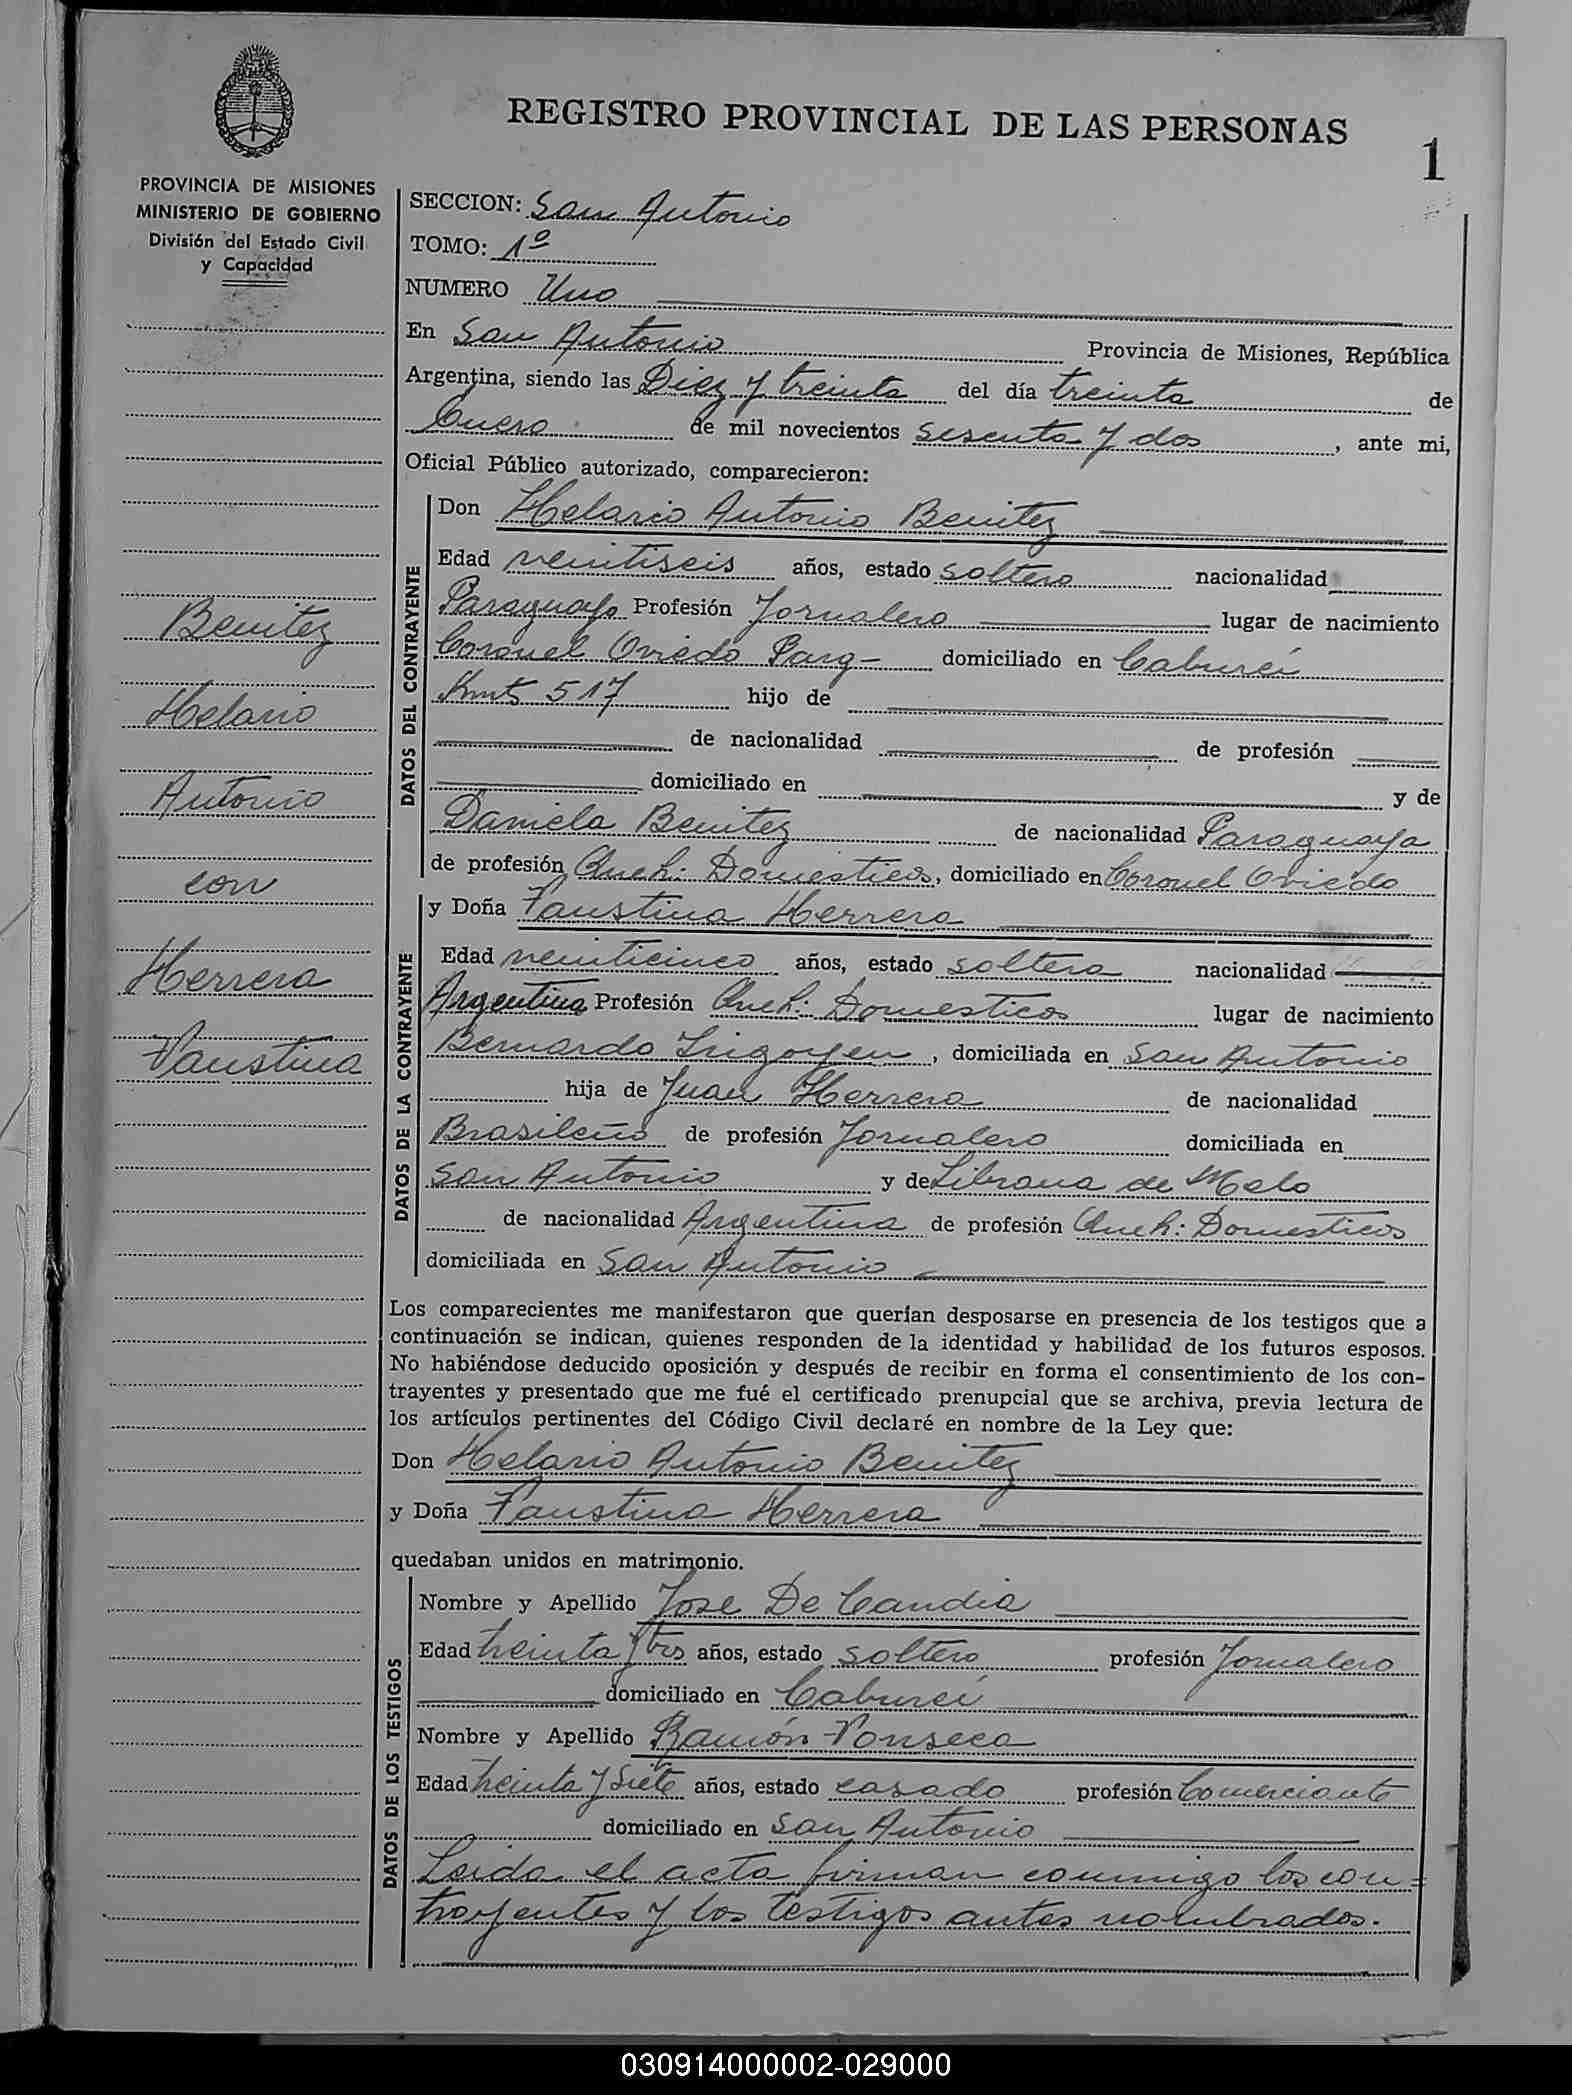 REGISTRO PROVINCIAL DE LAS PERSONAS
1
PROVINCIA DE MISIONES
MINISTERIO DE GOBIERNO
División del Estado Civil
y Capacidad
Benitez
Helario
Antonio
con
Herrera
Faustina
SECCION: San Antonio
TOMO: 1º
NUMERO Uno
En San Antonio Provincia de Misiones, República
Argentina, siendo las Diez y treinta del día treinta de
Enero de mil novecientos sesenta y dos, ante mi,
Oficial Público autorizado, comparecieron:
DATOS DEL CONTRAYENTE
Don Helario Antonio Benitez
Edad veintiseis años, estado soltero nacionalidad
Paraguayo Profesión Jornalero lugar de nacimiento
Coronel Oviedo Parg- domiciliado en Caburei
Kmts 517 hijo de
de nacionalidad de profesión
domiciliado en y de
Daniela Benitez de nacionalidad Paraguaya
de profesión Queh: Domesticos, domiciliado en Coronel Oviedo
DATOS DE LA CONTRAYENTE
y Doña Faustina Herrera
Edad veinticinco años, estado soltera nacionalidad
Argentina Profesión Queh: Domesticos lugar de nacimiento
Bernardo Irigoyen, domiciliada en San Antonio
hija de Juan Herrera de nacionalidad
Brasileño de profesión Jornalero domiciliada en
San Antonio y de Librana de Melo
de nacionalidad Argentina de profesión Queh: Domesticos
domiciliada en San Antonio
Los comparecientes me manifestaron que querían desposarse en presencia de los testigos que a
continuación se indican, quienes responden de la identidad y habilidad de los futuros esposos.
No habiéndose deducido oposición y después de recibir en forma el consentimiento de los con-
trayentes y presentado que me fué el certificado prenupcial que se archiva, previa lectura de
los artículos pertinentes del Código Civil declaré en nombre de la Ley que:
Don Helario Antonio Benitez
y Doña Faustina Herrera
quedaban unidos en matrimonio.
DATOS DE LOS TESTIGOS
Nombre y Apellido Jose De Candia
Edad treinta y tres años, estado soltero profesión Jornalero
domiciliado en Caburei
Nombre y Apellido Ramón Fonseca
Edad treinta y siete años, estado casado profesión Comerciante
domiciliado en San Antonio
Leida el acta firman conmigo los con=
trayentes y los testigos antes nombrados.
030914000002-029000